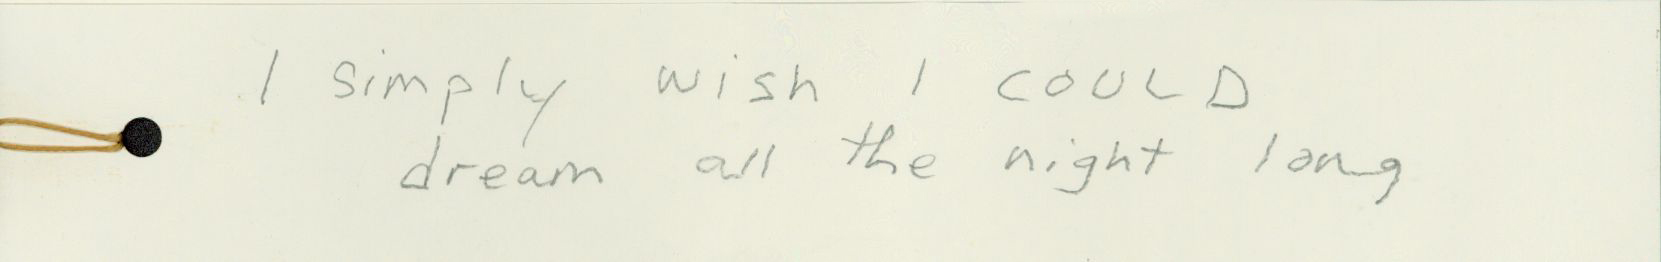 I simply wish I COULD
dream all the night long